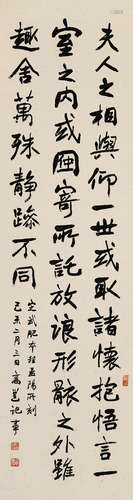 夫人之相與仰一世或取諸懷抱悟言一
室之內或因寄所託放浪形骸之外雖
趣舍萬殊靜躁不同
定武肥本 孟陽所刻
己未二月三日高邕記